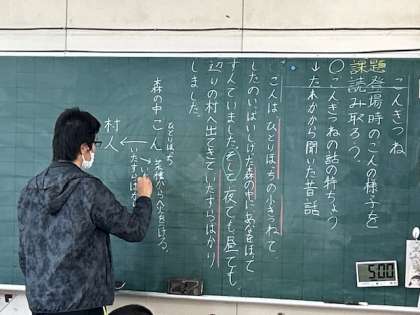 ごんぎつね
課題 登場時のごんの様子を
読み取ろう。
○ごんぎつねの話の特ちょう
↓たかから聞いた昔話
ごんは、ひとりぼっちの小ぎつねで、
しだのいっぱいしげった森の中にあなをほって
すんでいました。そして、夜でも昼でも、
辺りの村へ出てきて、いたずらばかり
しました。
ひとりぼっち
森の中 ごん
村人
いたずら
5:00